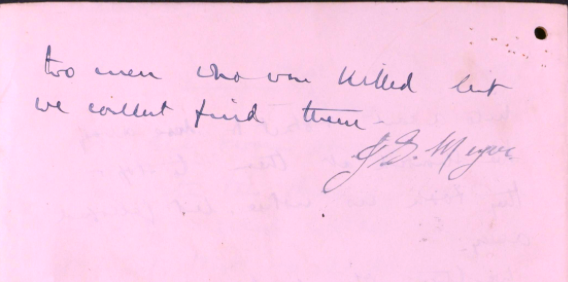 two men who were killed but
we couldnt find them.